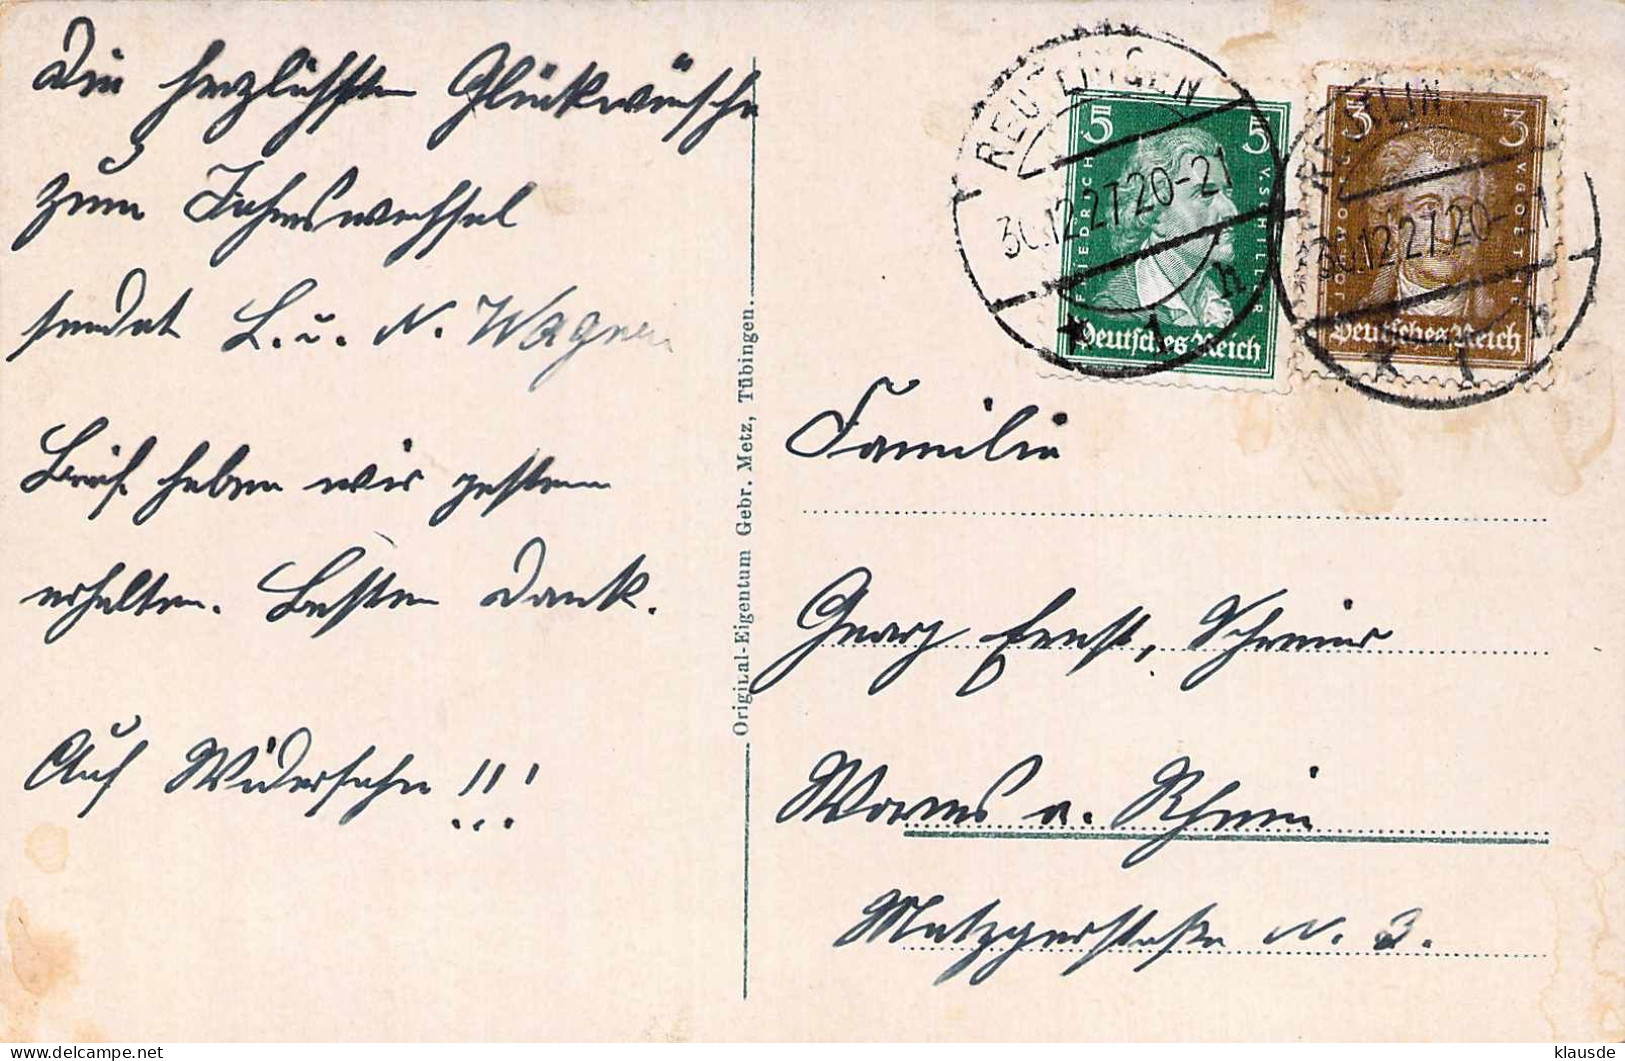 Die herzlichsten Glückwünsche
zum Jahreswechsel
sendet L. u. N. Wagner
Brief haben wir gestern
erhalten. Besten Dank.
Auf Widersehn !!!
Original-Eigentum Gebr. Metz, Tübingen.
REUTLINGEN
30.12.27.20-21
* 1 h
5 5
FRIEDRICH V. SCHILLER
Deutsches Reich
REUTLIN
30.12.27.20- 1
* 1 h
3 3
V. GOETHE
Deutsches Reich
Familie
Georg Ernst, Schreiner
Worms a. Rhein
Metzgerstraße N. 3.
klausde